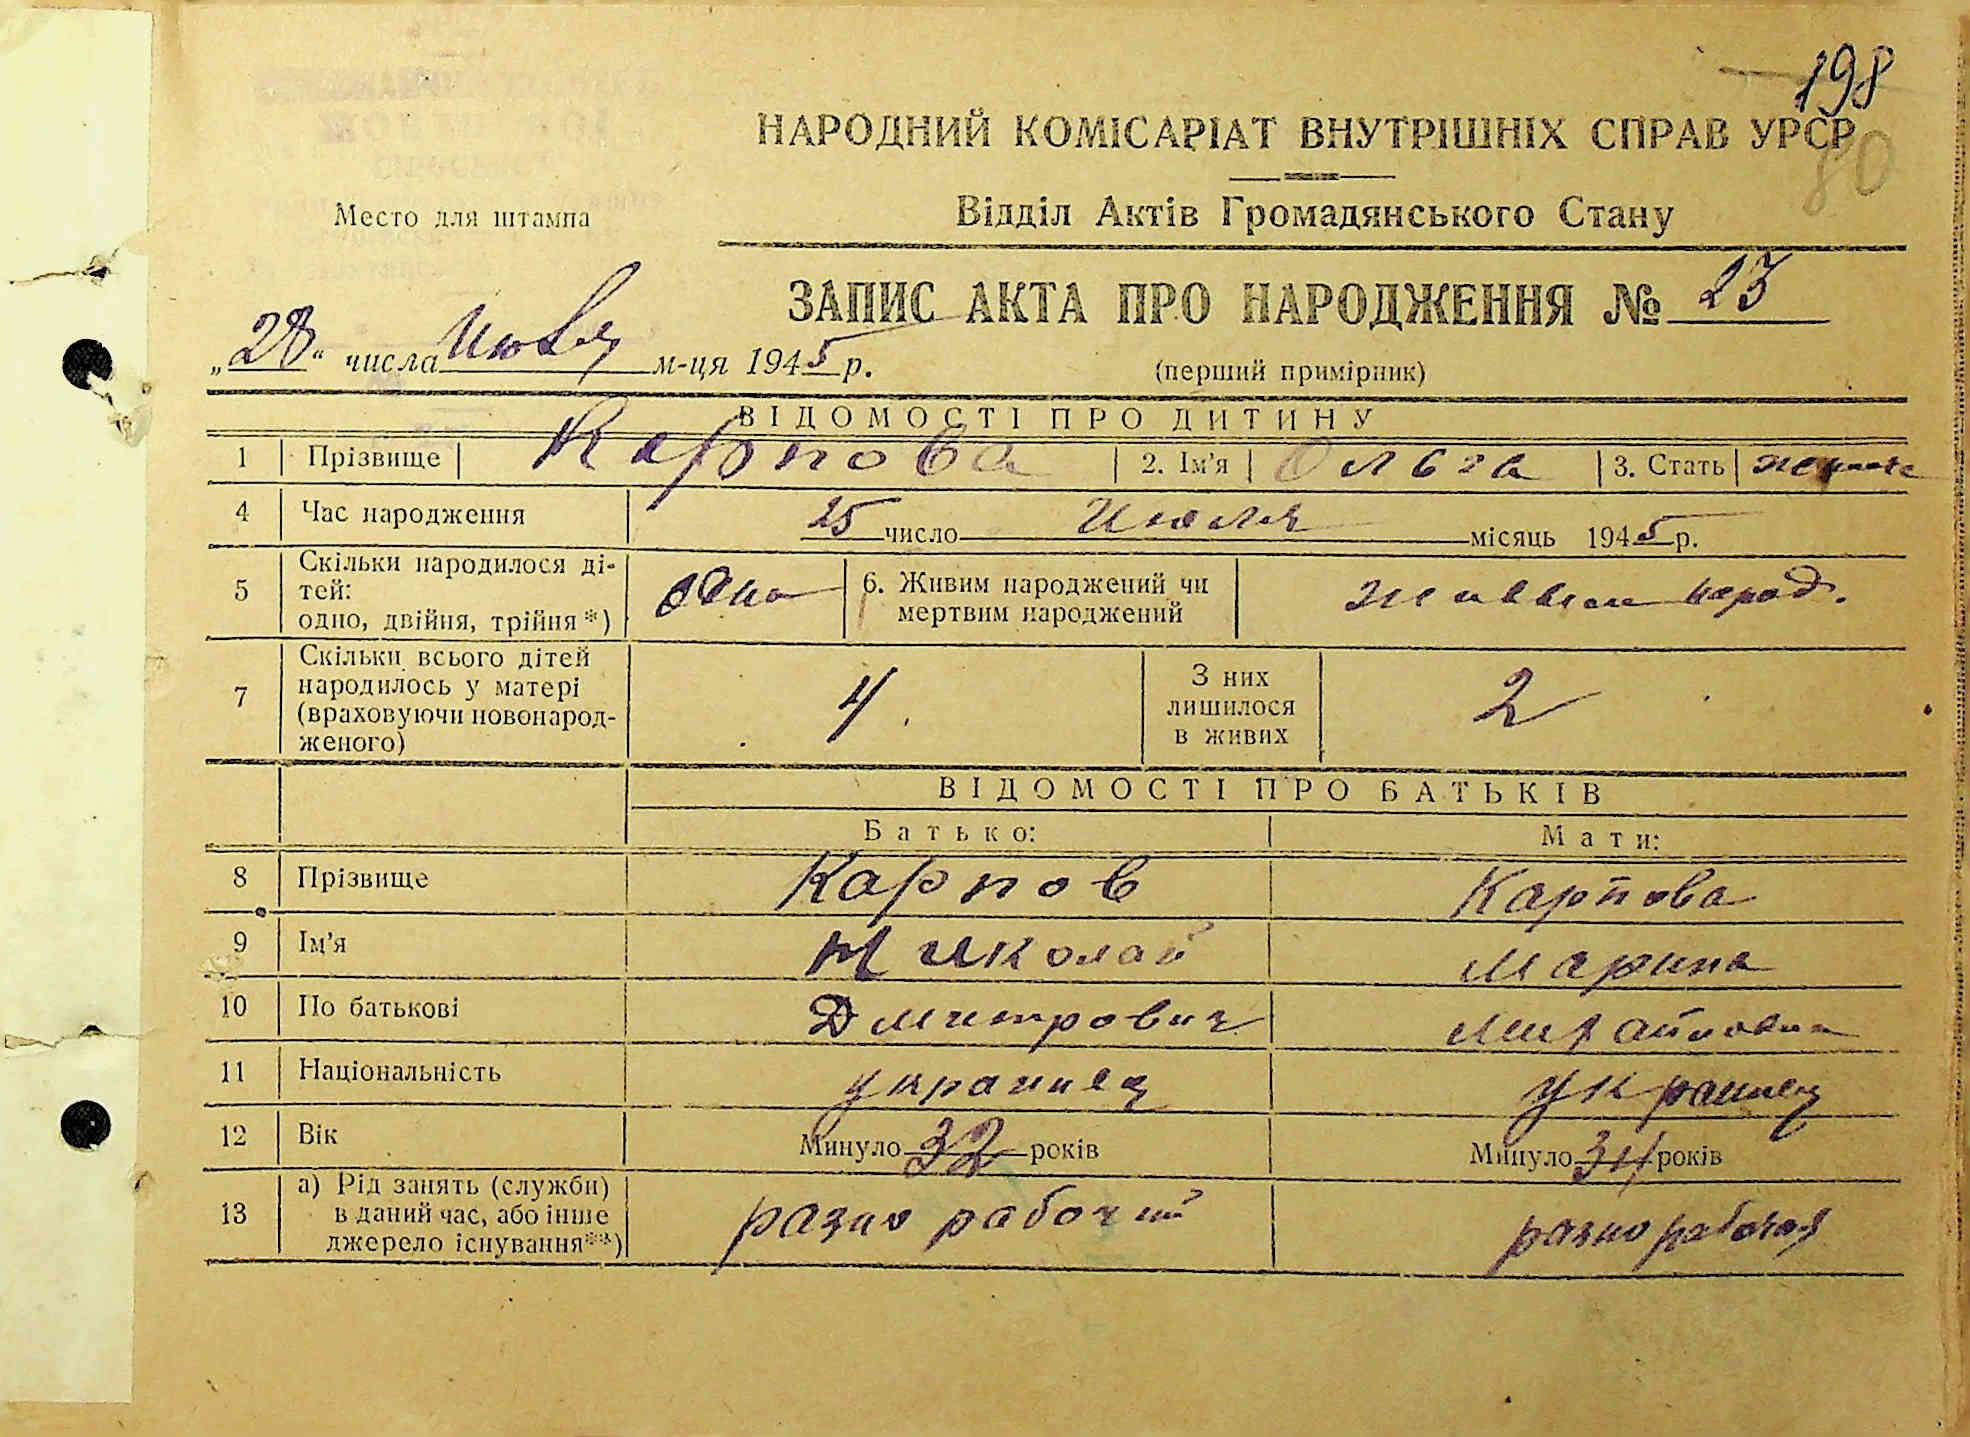 198
НАРОДНИЙ КОМІСАРІАТ ВНУТРІШНІХ СПРАВ УРСР
80
Место для штампа
Відділ Актів Громадянського Стану
ЗАПИС АКТА ПРО НАРОДЖЕННЯ № 23
„28“ числа Июля м-ця 1945 р.
(перший примірник)
ВІДОМОСТІ ПРО ДИТИНУ
1 Прізвище Карпова 2. Ім'я Ольга 3. Стать
4 Час народження 25 число Июля місяць 1945 р.
5 Скільки народилося ді-
тей:
одно, двійня, трійня*) одна
6. Живим народжений чи
мертвим народжений живым народ.
7 Скільки всього дітей
народилось у матері
(враховуючи новонарод-
женого) 4
З них
лишилося
в живих 2
ВІДОМОСТІ ПРО БАТЬКІВ
Батько: Мати:
8 Прізвище Карпов Карпова
9 Ім'я Николай Марина
10 По батькові Дмитрович Михайловна
11 Національність украинец украинец
12 Вік Минуло 32 років Минуло 34 років
13 а) Рід занять (служби)
в даний час, або інше
джерело існування**) разно рабочий разно рабочая